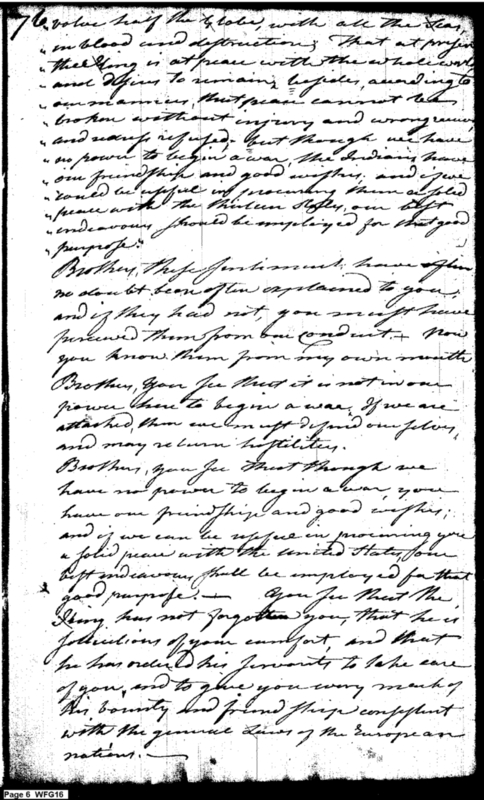 76
" volve half the Globe, with all the Seas,
" in blood and destruction; That at present
" the King is at peace with the whole world
" and desires to remain, besides, according to
" our manners, that peace cannot be
" broken without injury and wrong
" and redress refused. but though we have
" no power to begin a war, the Indians have
" our friendship and good wishes; and if we
" could be useful in procuring them a solid
" peace with the thirteen States, our best
" endeavours should be employed for that good
" purpose."
Brothers, these sentiments have often
no doubt been often explained to you,
and if they had not, you must have
perceived them from our conduct. Now
you know them from my own mouth
Brothers, You see that it is not in our
power here to begin a war, If we are
attacked, then we must defend ourselves,
and may return hostilities.
Brothers, you see that though we
have no power to begin a war, you
have our friendship and good wishes;
and if we can be useful in procuring you
a solid peace with the United States, our
best endeavours shall be employed for that
good purpose. — You see that the
King has not forgotten you, that he is
solicitous of your comfort, and that
he has ordered his servants to take care
of you, and to give you every mark of
his bounty and friendship consistent
with the general Laws of the European
nations. —
Page 6 WFG16